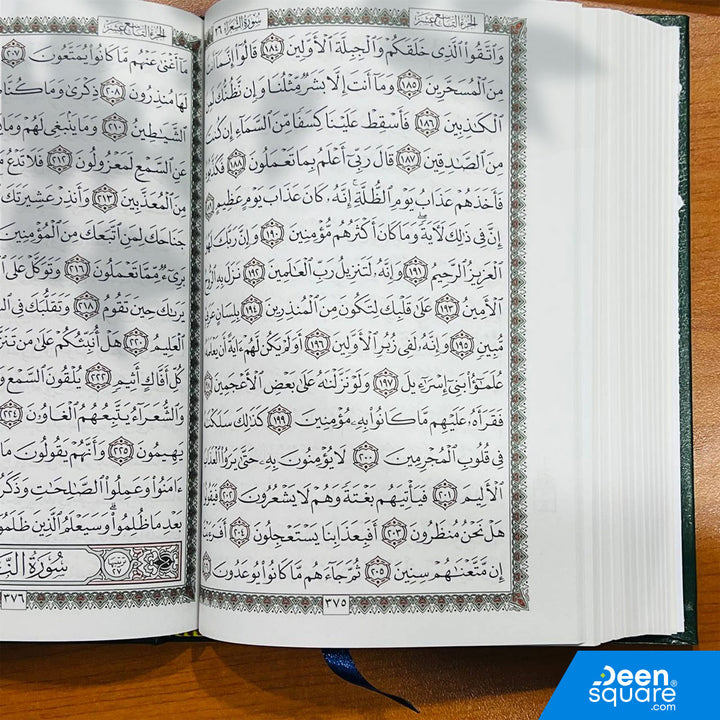 الجزء التاسع عشر
سورة الشعراء ٢٦
وَٱتَّقُوا۟ ٱلَّذِى خَلَقَكُمْ وَٱلْجِبِلَّةَ ٱلْأَوَّلِينَ ١٨٤ قَالُوٓا۟ إِنَّمَآ
مِنَ ٱلْمُسَحَّرِينَ ١٨٥ وَمَآ أَنتَ إِلَّا بَشَرٌ مِّثْلُنَا وَإِن نَّظُنُّكَ
ٱلْكَـٰذِبِينَ ١٨٦ فَأَسْقِطْ عَلَيْنَا كِسَفًا مِّنَ ٱلسَّمَآءِ إِن كُنتَ
مِنَ ٱلصَّـٰدِقِينَ ١٨٧ قَالَ رَبِّىٓ أَعْلَمُ بِمَا تَعْمَلُونَ ١٨٨
فَأَخَذَهُمْ عَذَابُ يَوْمِ ٱلظُّلَّةِ ۚ إِنَّهُۥ كَانَ عَذَابَ يَوْمٍ عَظِيمٍ
إِنَّ فِى ذَٰلِكَ لَـَٔايَةً ۖ وَمَا كَانَ أَكْثَرُهُم مُّؤْمِنِينَ ١٩٠ وَإِنَّ رَبَّكَ
ٱلْعَزِيزُ ٱلرَّحِيمُ ١٩١ وَإِنَّهُۥ لَتَنزِيلُ رَبِّ ٱلْعَـٰلَمِينَ ١٩٢ نَزَلَ بِهِ
ٱلْأَمِينُ ١٩٣ عَلَىٰ قَلْبِكَ لِتَكُونَ مِنَ ٱلْمُنذِرِينَ ١٩٤ بِلِسَانٍ
مُّبِينٍ ١٩٥ وَإِنَّهُۥ لَفِى زُبُرِ ٱلْأَوَّلِينَ ١٩٦ أَوَلَمْ يَكُن لَّهُمْ ءَايَةً أَن
عُلَمَـٰٓؤُا۟ بَنِىٓ إِسْرَٰٓءِيلَ ١٩٧ وَلَوْ نَزَّلْنَـٰهُ عَلَىٰ بَعْضِ ٱلْأَعْجَمِينَ
فَقَرَأَهُۥ عَلَيْهِم مَّا كَانُوا۟ بِهِۦ مُؤْمِنِينَ ١٩٩ كَذَٰلِكَ
فِى قُلُوبِ ٱلْمُجْرِمِينَ ٢٠٠ لَا يُؤْمِنُونَ بِهِۦ حَتَّىٰ يَرَوُا۟
ٱلْأَلِيمَ ٢٠١ فَيَأْتِيَهُم بَغْتَةً وَهُمْ لَا يَشْعُرُونَ ٢٠٢
هَلْ نَحْنُ مُنظَرُونَ ٢٠٣ أَفَبِعَذَابِنَا يَسْتَعْجِلُونَ ٢٠٤
إِن مَّتَّعْنَـٰهُمْ سِنِينَ ٢٠٥ ثُمَّ جَآءَهُم مَّا كَانُوا۟ يُوعَدُونَ
٣٧٥
الجزء التاسع عشر
مَآ أَغْنَىٰ عَنْهُم مَّا كَانُوا۟ يُمَتَّعُونَ ٢٠٧
لَهَا مُنذِرُونَ ٢٠٨ ذِكْرَىٰ وَمَا كُنَّا
ٱلشَّيَـٰطِينُ ٢١٠ وَمَا يَنۢبَغِى لَهُمْ وَمَا
عَنِ ٱلسَّمْعِ لَمَعْزُولُونَ ٢١٢ فَلَا تَدْعُ
مِنَ ٱلْمُعَذَّبِينَ ٢١٣ وَأَنذِرْ عَشِيرَتَكَ
جَنَاحَكَ لِمَنِ ٱتَّبَعَكَ مِنَ ٱلْمُؤْمِنِينَ
بَرِىٓءٌ مِّمَّا تَعْمَلُونَ ٢١٦ وَتَوَكَّلْ عَلَى
يَرَىٰكَ حِينَ تَقُومُ ٢١٨ وَتَقَلُّبَكَ فِى
ٱلْعَلِيمُ ٢٢٠ هَلْ أُنَبِّئُكُمْ عَلَىٰ مَن
كُلِّ أَفَّاكٍ أَثِيمٍ ٢٢٢ يُلْقُونَ ٱلسَّمْعَ
وَٱلشُّعَرَآءُ يَتَّبِعُهُمُ ٱلْغَاوُۥنَ ٢٢٤
يَهِيمُونَ ٢٢٥ وَأَنَّهُمْ يَقُولُونَ
ءَامَنُوا۟ وَعَمِلُوا۟ ٱلصَّـٰلِحَـٰتِ
بَعْدِ مَا ظُلِمُوا۟ ۗ وَسَيَعْلَمُ ٱلَّذِينَ
ترتيبها ٢٧
سُورَةُ
٣٧٦
Deen
square®
.com